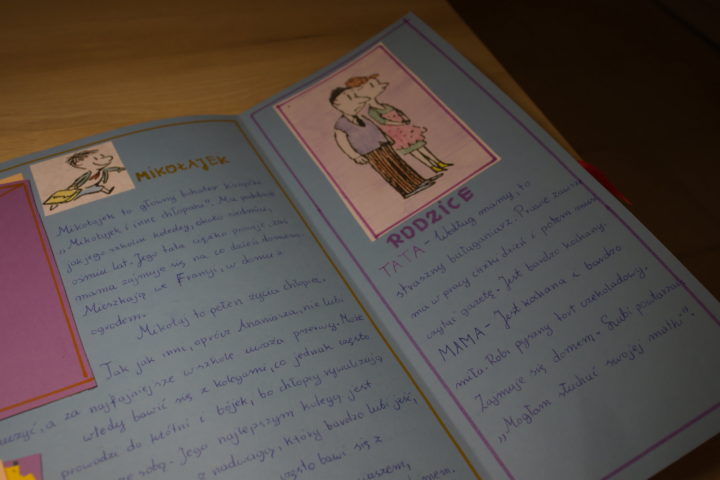 MIKOŁAJEK
Mikołajek to główny bohater książki
"Mikołajek i inne chłopaki". Ma podobnie
jak jego szkolni koledzy, około siedmiu,
ośmiu lat. Jego tata ciężko pracuje, zaś
mama zajmuje się na co dzień domem.
Mieszkają we Francji, w domu z
ogrodem.
Mikołaj to pełen życia chłopiec.
Tak jak inni, oprócz Ananiasza, nie lubi
uczyć, a za najfajniejsze w szkole uważa przerwy. Może
wtedy bawić się z kolegami, co jednak często
prowadzi do kłótni i bójek, bo chłopcy rywalizują
ze sobą. Jego najlepszym kolegą jest
z nadwagą, który bardzo lubi jeść,
często bawi się z
RODZICE
TATA - Według mamy, to
straszny bałaganiarz. Prawie zawsze
ma w pracy ciężki dzień i potem musi
czytać gazetę. Jest bardzo kochany.
MAMA - Jest kochana i bardzo
miła. Robi pyszny tort czekoladowy.
Zajmuje się domem. Lubi powtarzać
"Mogłam słuchać swojej matki".